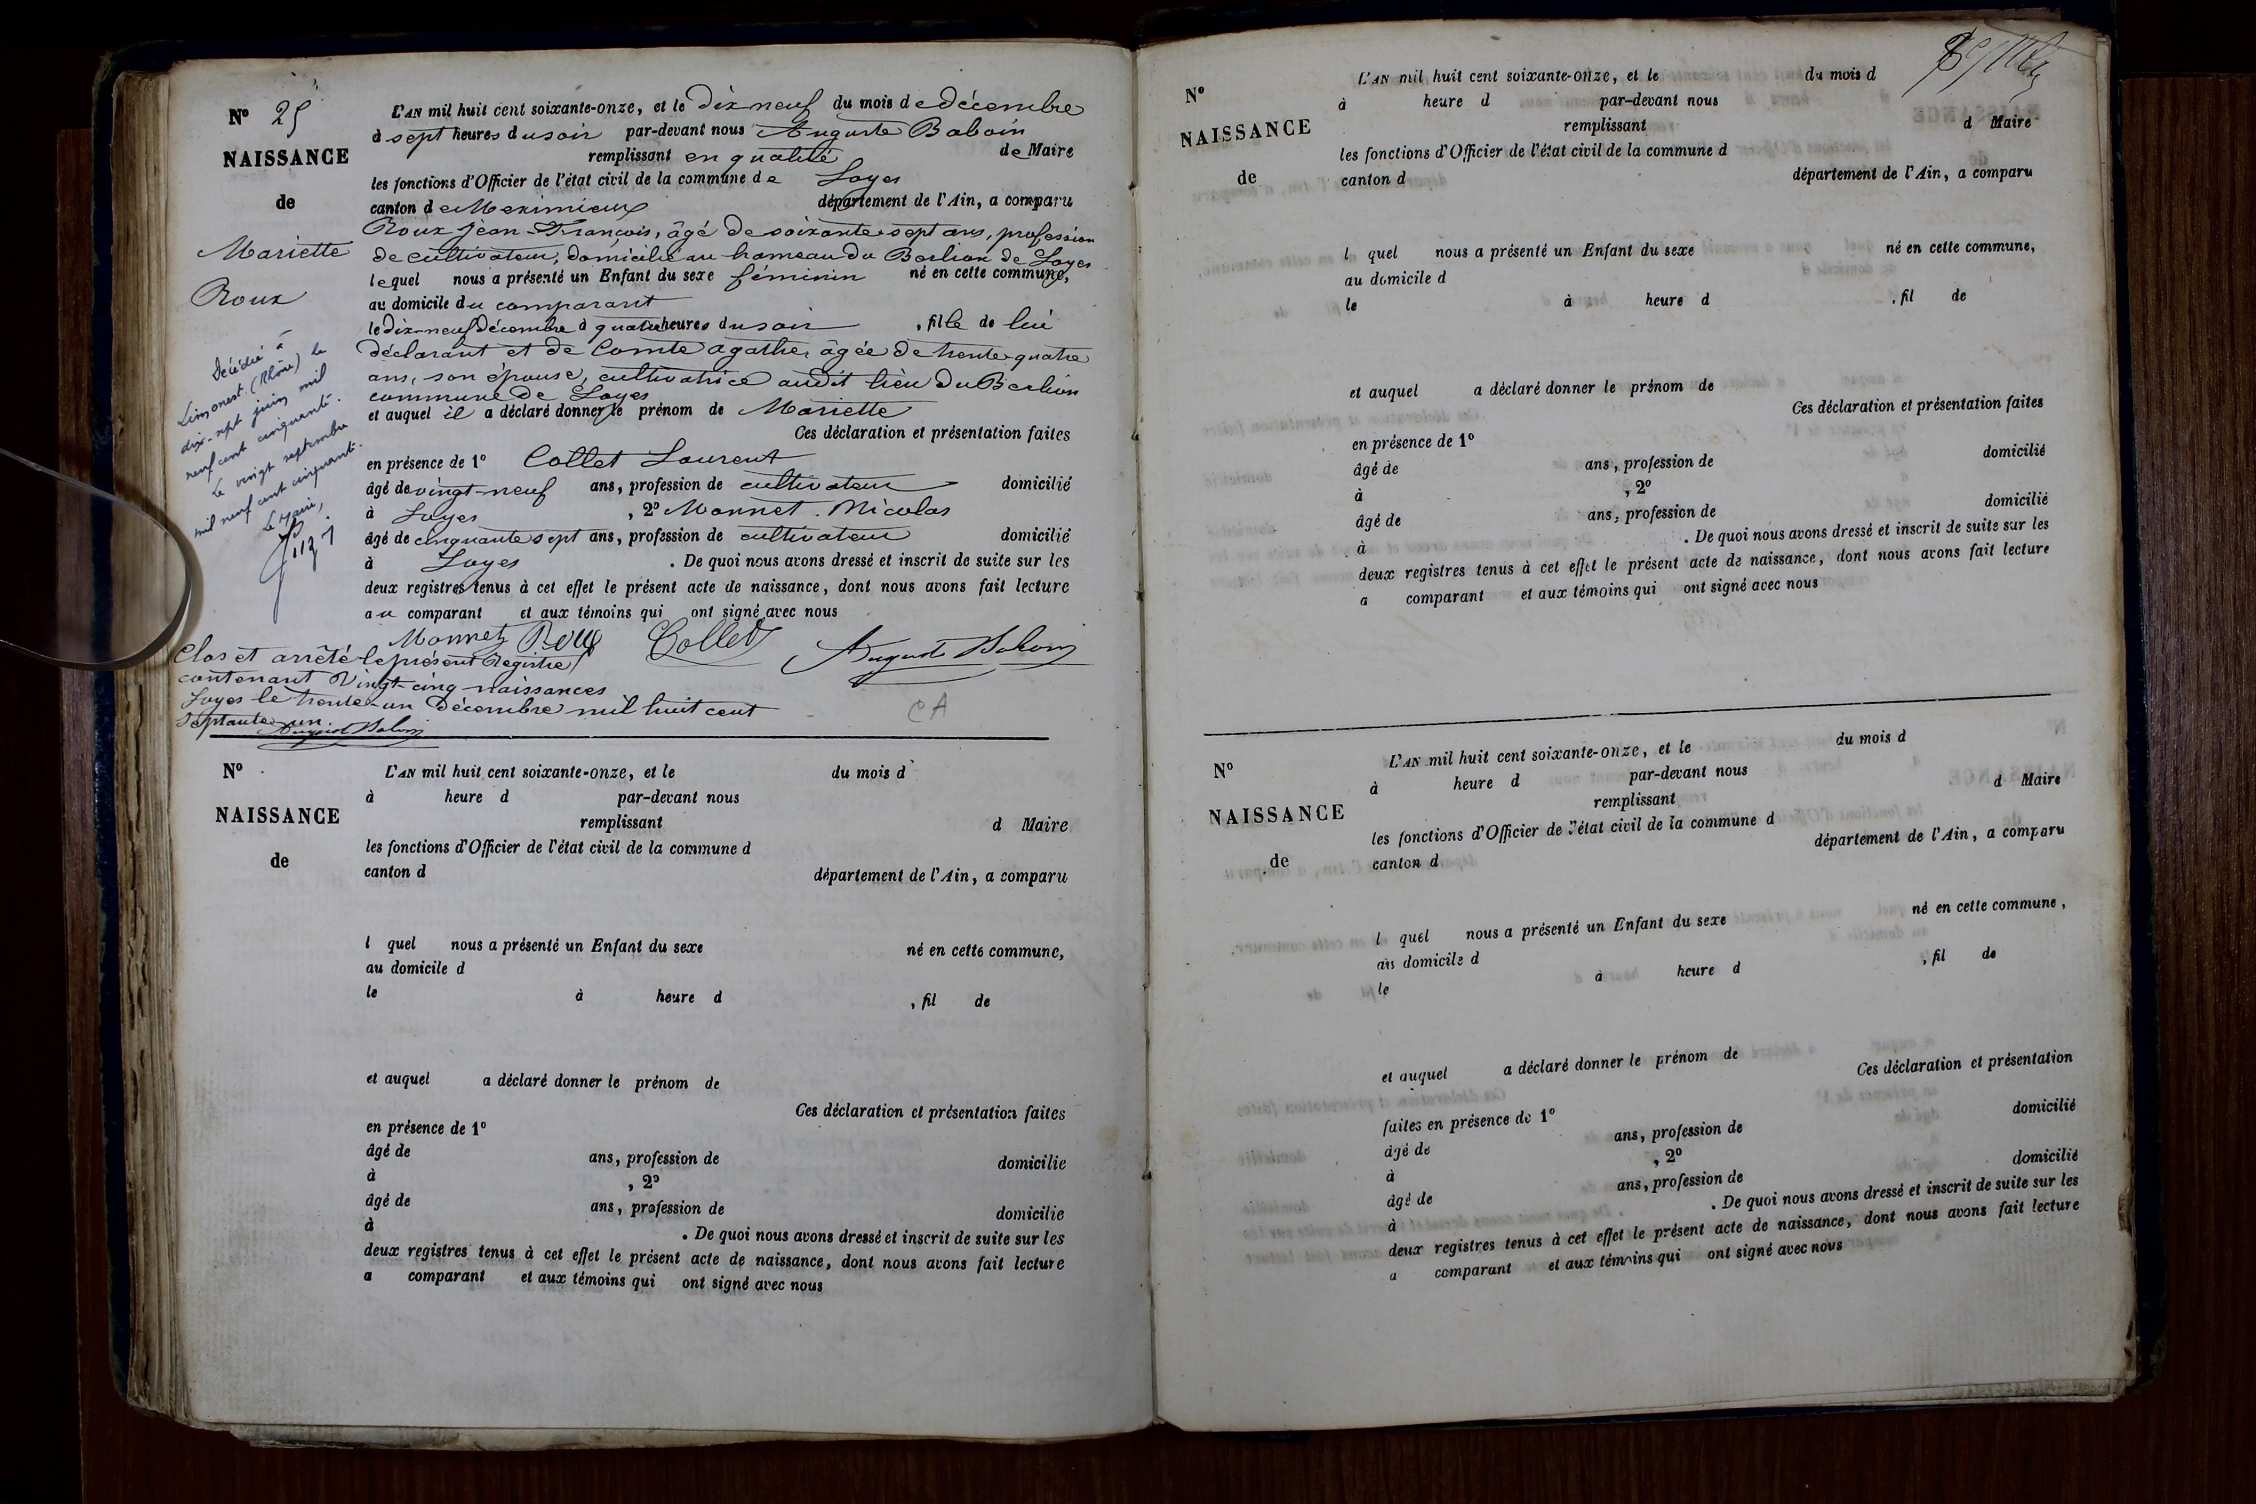 N° 25
NAISSANCE
de
Mariette
Roux
Décédée à
Limonest (Rhône) le
dix-sept juin mil
neuf cent cinquante.
Le vingt septembre
mil neuf cent cinquante.
Le Maire,
L'AN mil huit cent soixante-onze, et le dix neuf du mois de décembre
à sept heures du soir par-devant nous Auguste Baboin
remplissant en qualité de Maire
les fonctions d'Officier de l'état civil de la commune de Loyes
canton de Meximieux département de l'Ain, a comparu
Roux Jean François, âgé de soixante sept ans, profession
de cultivateur, domicilié au hameau du Berlion de Loyes
lequel nous a présenté un Enfant du sexe féminin né en cette commune,
au domicile du comparant
le dix-neuf décembre à quatre heures du soir, fille de lui
déclarant et de Comte Agathe, âgée de trente quatre
ans, son épouse, cultivatrice audit lieu du Berlion
commune de Loyes
et auquel il a déclaré donner le prénom de Mariette
Ces déclaration et présentation faites
en présence de 1° Collet Laurent
âgé de vingt-neuf ans, profession de cultivateur domicilié
à Loyes, 2° Monnet Nicolas
âgé de cinquante sept ans, profession de cultivateur domicilié
à Loyes. De quoi nous avons dressé et inscrit de suite sur les
deux registres tenus à cet effet le présent acte de naissance, dont nous avons fait lecture
au comparant et aux témoins qui ont signé avec nous
Monnet Roux Collet Auguste Baboin
Clos et arrêté le présent Registre
contenant vingt-cinq naissances
Loyes le trente-un Décembre mil huit cent
septante un.
Auguste Baboin
CA
N°
NAISSANCE
de
L'AN mil huit cent soixante-onze, et le du mois d
à heure d par-devant nous
remplissant d Maire
les fonctions d'Officier de l'état civil de la commune d
canton d département de l'Ain, a comparu
l quel nous a présenté un Enfant du sexe né en cette commune,
au domicile d
le à heure d , fil de
et auquel a déclaré donner le prénom de
Ces déclaration et présentation faites
en présence de 1°
âgé de ans, profession de domicilie
à , 2°
âgé de ans, profession de domicilie
à . De quoi nous avons dressé et inscrit de suite sur les
deux registres tenus à cet effet le présent acte de naissance, dont nous avons fait lecture
a comparant et aux témoins qui ont signé avec nous
N°
NAISSANCE
de
L'AN mil huit cent soixante-onze, et le du mois d
à heure d par-devant nous
remplissant d Maire
les fonctions d'Officier de l'état civil de la commune d
canton d département de l'Ain, a comparu
l quel nous a présenté un Enfant du sexe né en cette commune,
au domicile d
le à heure d , fil de
et auquel a déclaré donner le prénom de
Ces déclaration et présentation faites
en présence de 1°
âgé de ans, profession de domicilié
à , 2°
âgé de ans, profession de domicilié
à . De quoi nous avons dressé et inscrit de suite sur les
deux registres tenus à cet effet le présent acte de naissance, dont nous avons fait lecture
a comparant et aux témoins qui ont signé avec nous
N°
NAISSANCE
de
L'AN mil huit cent soixante-onze, et le du mois d
à heure d par-devant nous
remplissant d Maire
les fonctions d'Officier de l'état civil de la commune d
canton d département de l'Ain, a comparu
l quel nous a présenté un Enfant du sexe né en cette commune,
au domicile d
le à heure d , fil de
et auquel a déclaré donner le prénom de
Ces déclaration et présentation
faites en présence de 1°
âgé de ans, profession de domicilié
à , 2°
âgé de ans, profession de domicilié
à . De quoi nous avons dressé et inscrit de suite sur les
deux registres tenus à cet effet le présent acte de naissance, dont nous avons fait lecture
a comparant et aux témoins qui ont signé avec nous